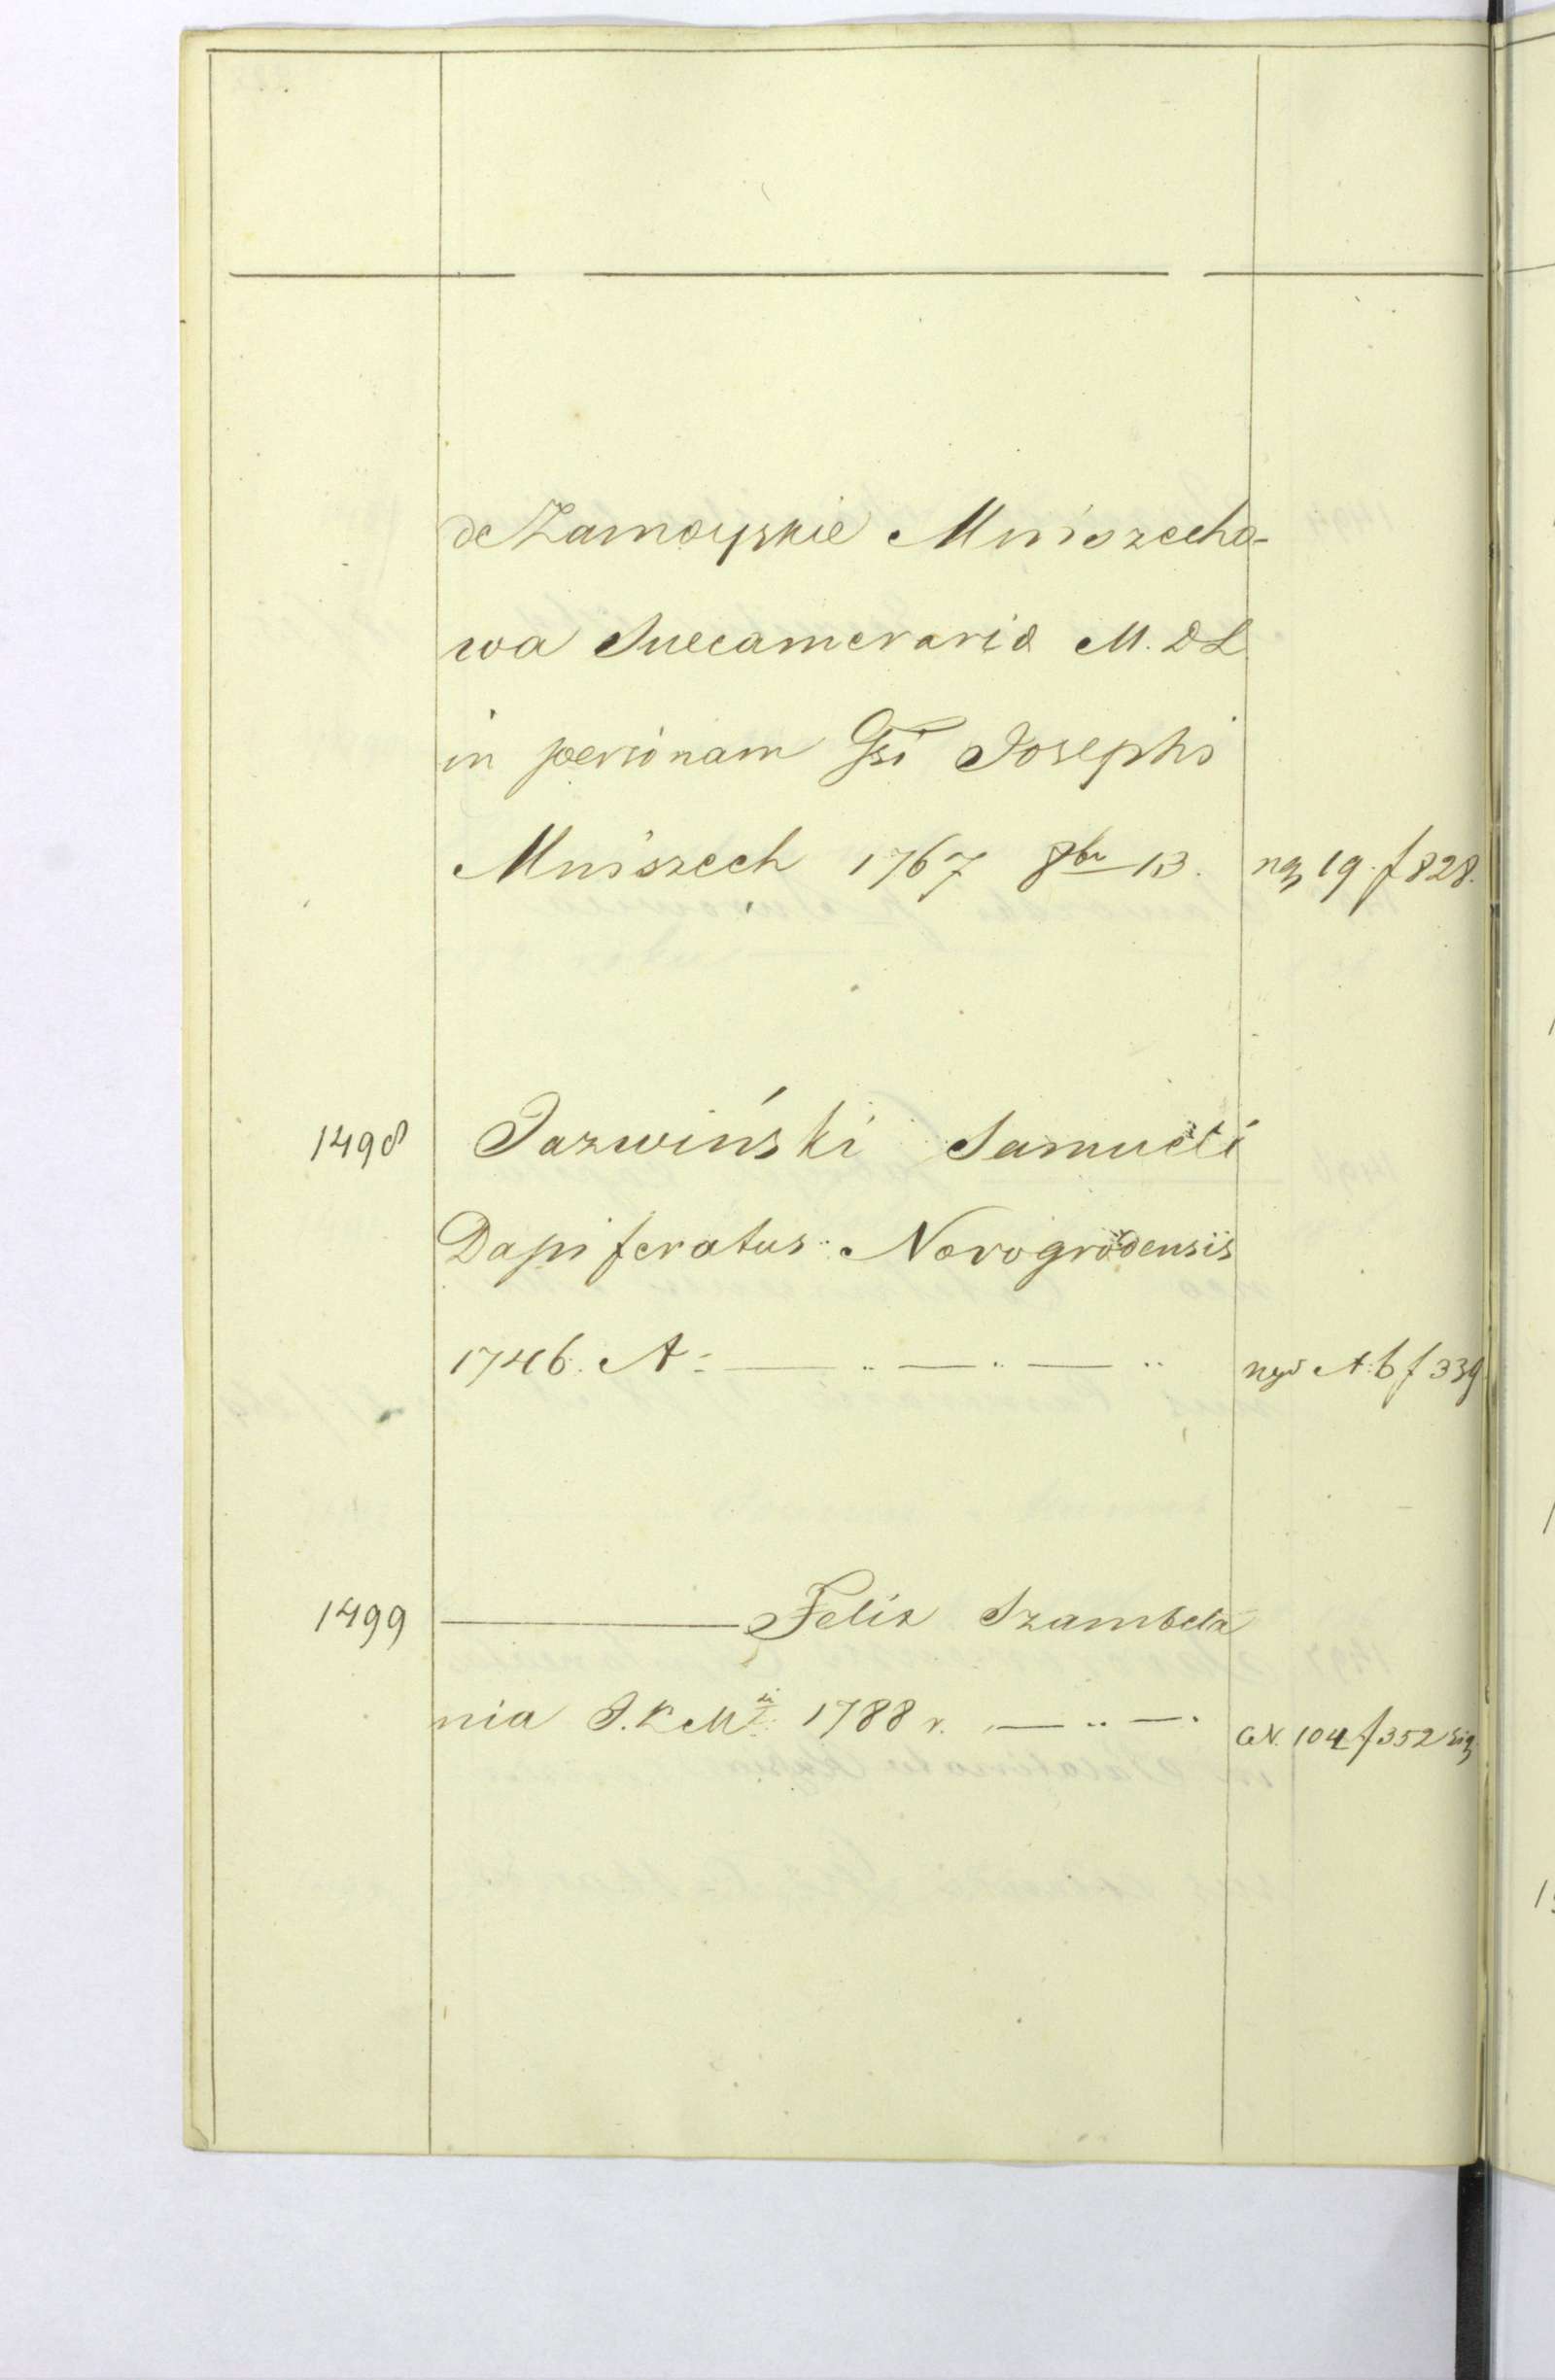 de Zamoyskie Mniszecho-
wa Succameraria M. D L
in personam Gsi Josephi
Mniszech 1767 8br 13. 19. f 828.
1498 Jazwiński Samueli
Dapiferatus Novogrodensis
1746. A. A. 6 f 339
1499 Felix Szambela
nia J. K Mci 1788 r. 104 f 352